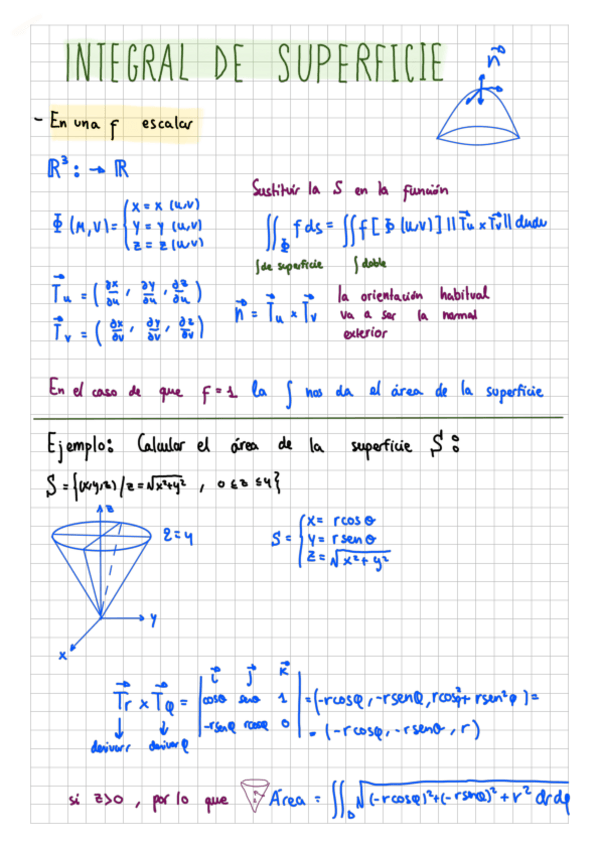 INTEGRAL DE SUPERFICIE
n⃗
- En una f escalar
ℝ³: → ℝ
Sustituir la S en la función
Φ(u,v) = { x = x (u,v)
y = y (u,v)
z = z (u,v)
∬_Φ f ds = ∬ f [Φ (u,v)] ||T⃗u x T⃗v|| dudv
∫ de superficie ∫ doble
T⃗u = (∂x/∂u, ∂y/∂u, ∂z/∂u)
T⃗v = (∂x/∂v, ∂y/∂v, ∂z/∂v)
n⃗ = T⃗u x T⃗v
la orientación habitual
va a ser la normal
exterior
En el caso de que f = 1 la ∫ nos da el área de la superficie
Ejemplo: Calcular el área de la superficie S:
S = {(x,y,z) / z = √x²+y² , 0 ≤ z ≤ 4}
z
z = 4
y
x
S = { x = r cos θ
y = r sen θ
z = √x² + y²
i⃗ j⃗ k⃗
T⃗r x T⃗θ = | cosθ senθ 1 | = (-rcosθ, -rsenθ, rcos²θ + rsen²θ) =
-rsenθ rcosθ 0
= (-rcosθ, -rsenθ, r)
derivar r derivar θ
si z>0 , por lo que Área = ∬_D √(-rcosθ)²+(-rsenθ)² + r² drdθ